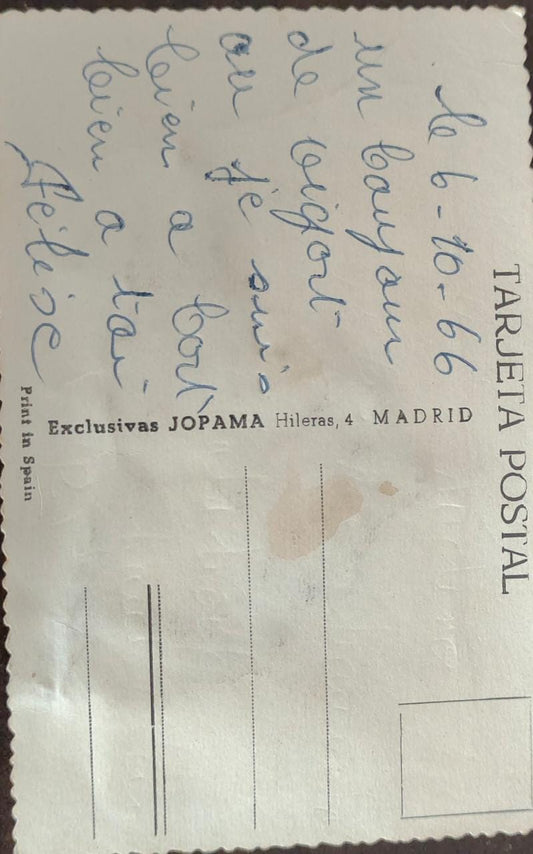 TARJETA POSTAL
le 6-10-66
un bonjour
de
ou je suis
bien a bort
bien a toi
Félise
Exclusivas JOPAMA Hileras, 4 MADRID
Print in Spain